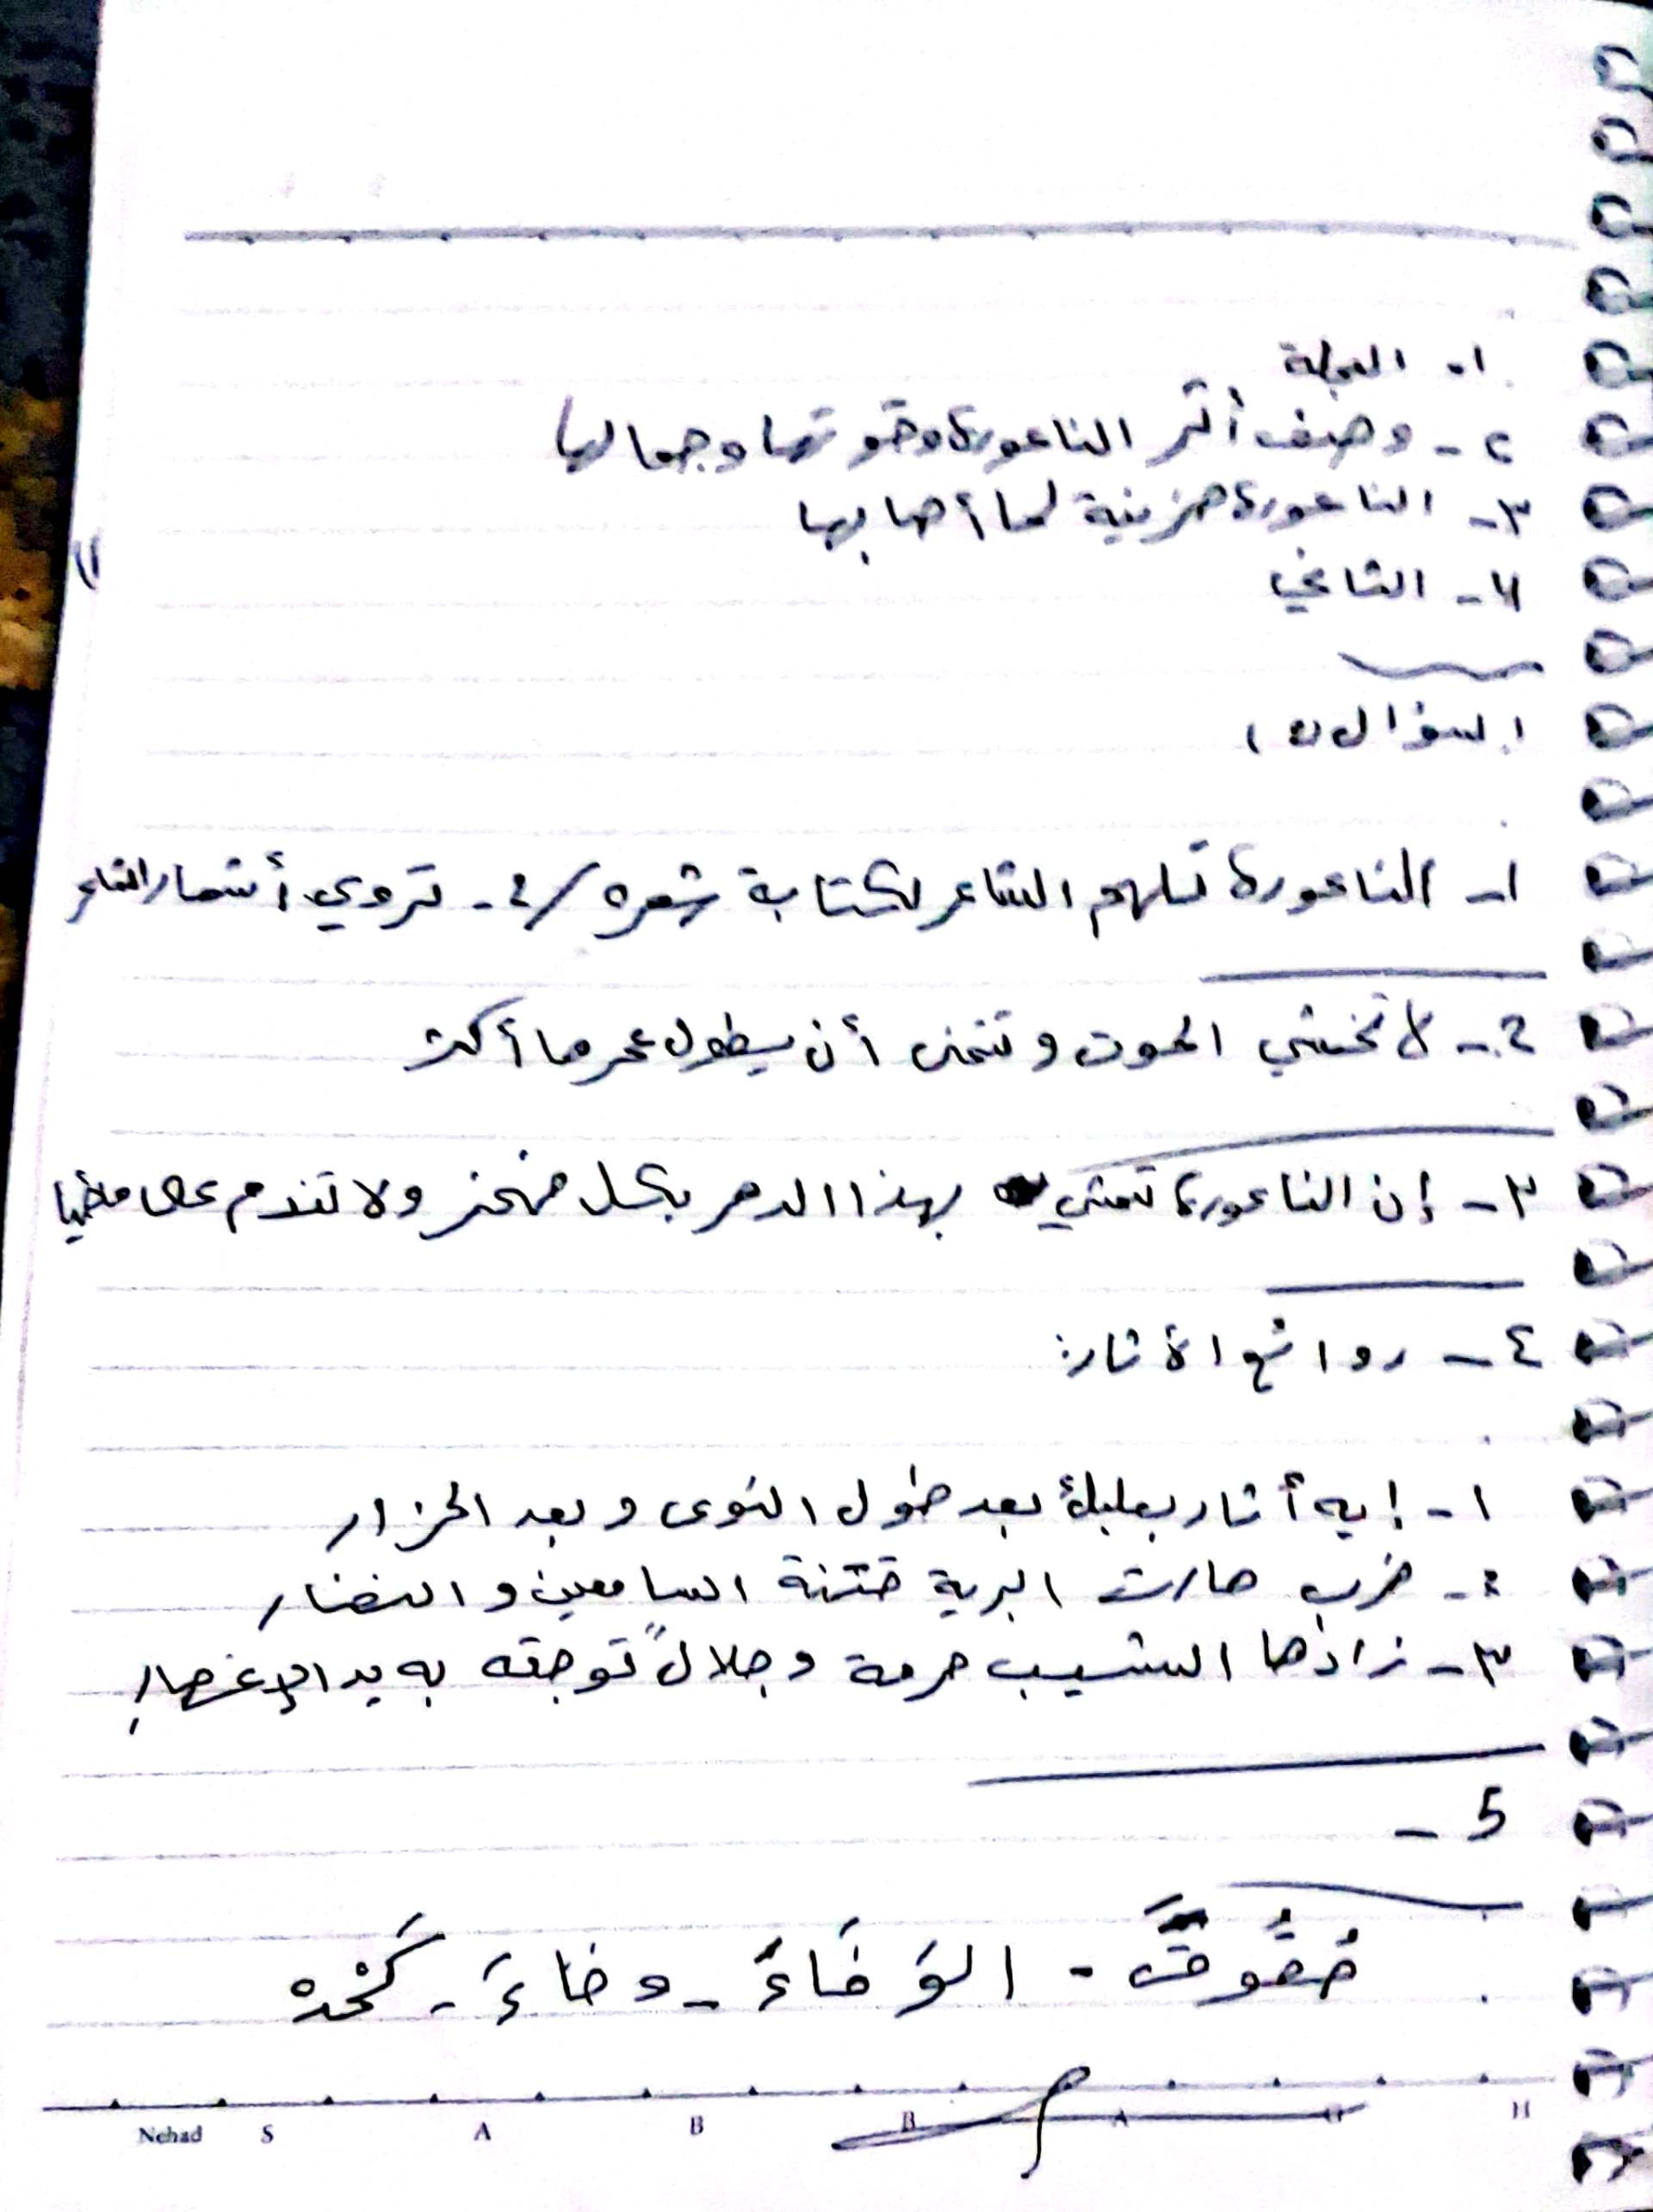 ١- العجلة
٢- وصف أثر الناعورة وقوتها وجمالها
٣- الناعورة حزينة لما أصابها
٤- الثاني
السؤال
١- الناعورة تلهم الشاعر لكتابة شعره / ٢- تروي أشعار الشاعر
٢- لا تخشى الموت وتتمنى أن يطول عمرها أكثر
٣- إن الناعورة تمشي بهذا الدهر بكل فخر ولا تندم على ماضيها
٤- روائع الآثار:
١- إيه آثار بعلبك بعد طول النوى وبعد المزار
٢- خرب حارت البرية فتنة السامعين والنضار
٣- زادها الشيب حرمة وجلالاً توجته به يد الإعصار
5-
خفوق - الوفاء - وضاء -
Nehad S A B B A H